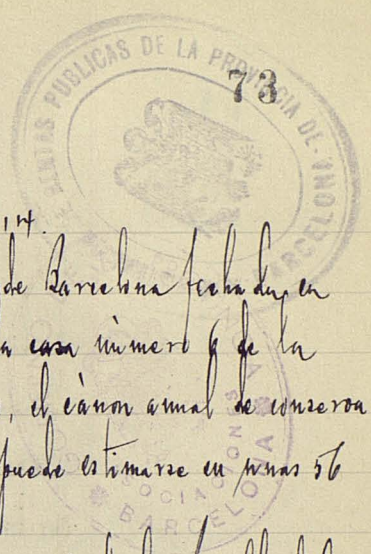 RENTAS PUBLICAS DE LA PROVINCIA DE BARCELONA
73
14.
de Barcelona fechada en
a casa número 6 de la
, el cánon anual de conserva
puede estimarse en unas 56
ASOCIACIONES
BARCELONA